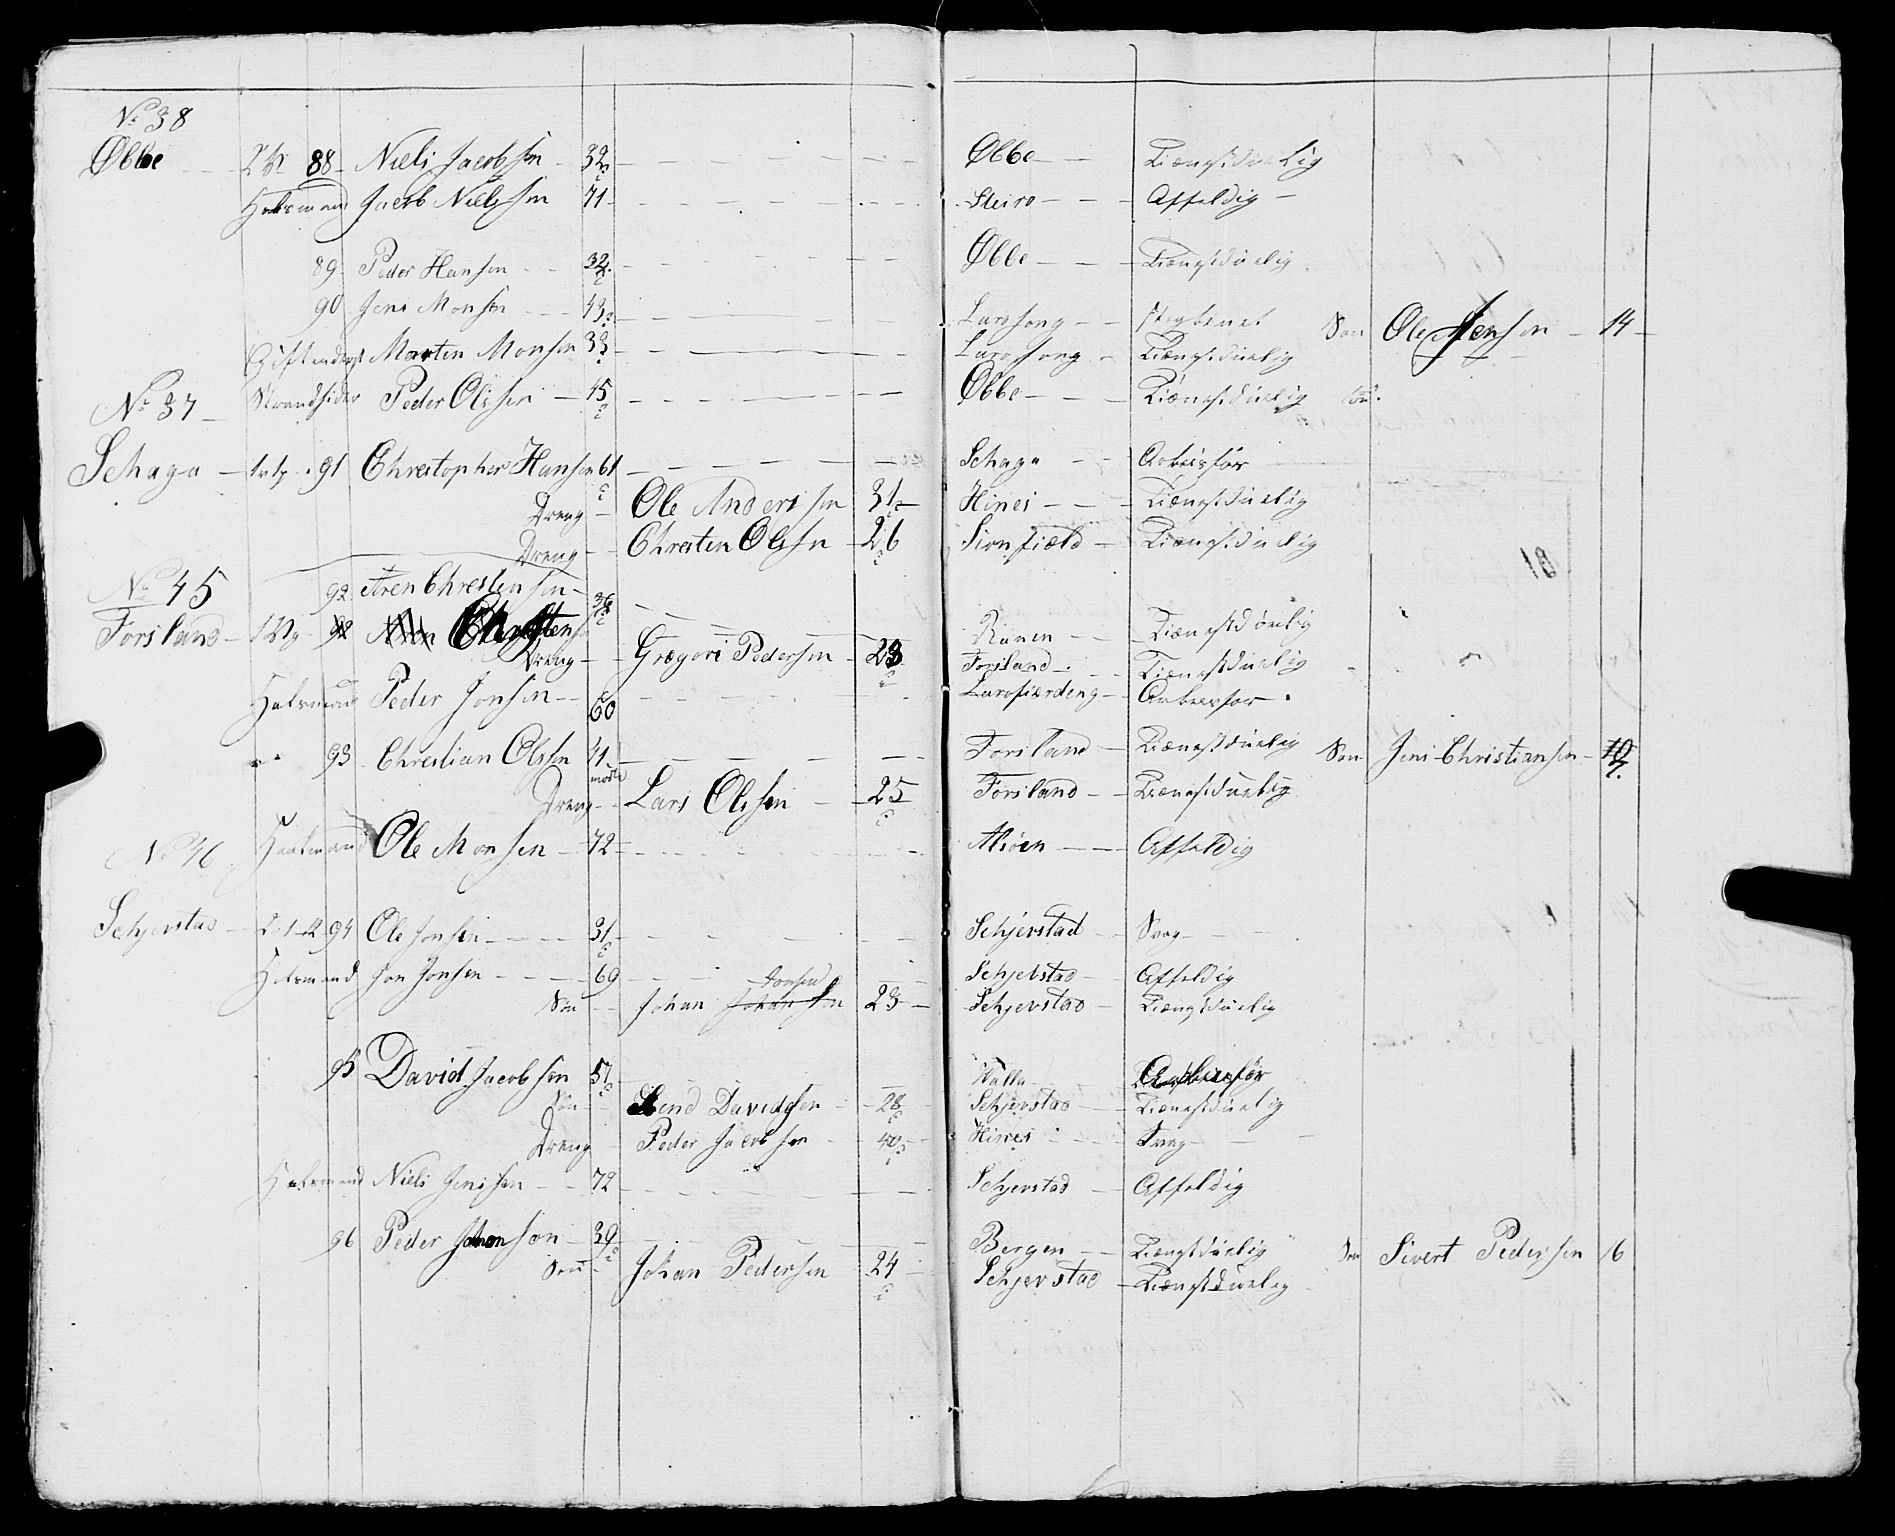 No 38
Øbbe 88 Niels Jacobsen 32 Øbbe Tienestduelig
Huusmand Jacob Nielsen 71 Steiro Affeldig
89 Peder Hansen 32 Øbbe Tienestduelig
90 Jens Monsen 43 Larssong Son Ole Jensen 14
Morten Monsen 33 Larssong Tienestduelig
Strandsider Peder Olsen 45 Øbbe Tienestduelig
No 37
Schaga 91 Chrestopher Hansen 61 Schaga Arbeisfør
Dreng Ole Andersen 31 Hines Tienestduelig
Dreng Chresten Olsen 26 Tienestduelig
No 45
92 Aren Chrestensen 38
Forsland 92 Aren Chresten Ranen Tienestduelig
Dreng Gregori Pedersen 23 Forsland Tienestduelig
Huusmand Peder Jonsen 60 Larsfiærdeng Arbeisfør
93 Chrestian Olsen 41 Forsland Tienestduelig Son Jens Christiansen 10
Dreng Lars Olsen 25 Forsland Tienestduelig
No 46
Huusmand Ole Monsen 72 Alsøen Affeldig
Schjerstad 94 Ole Jonsen 31 Schjerstad Svag
Huusmand Jon Jonsen 69 Schjerstad Affeldig
Jonsen
Søn Johan Johansen 23 Schjerstad Tienestduelig
95 David Jacobsen 51 Walla Arbeisfør
Søn Davidsen 28 Schjerstad Tienestduelig
Dreng Peder Jacobsen 40 Hines Svag
Huusmand Niels Jensen 72 Schjerstad Affeldig
96 Peder Johansen 39 Bergen Tienestduelig Søn Sivert Pedersen 16
Søn Johan Pedersen 24 Schjerstad Tienestduelig